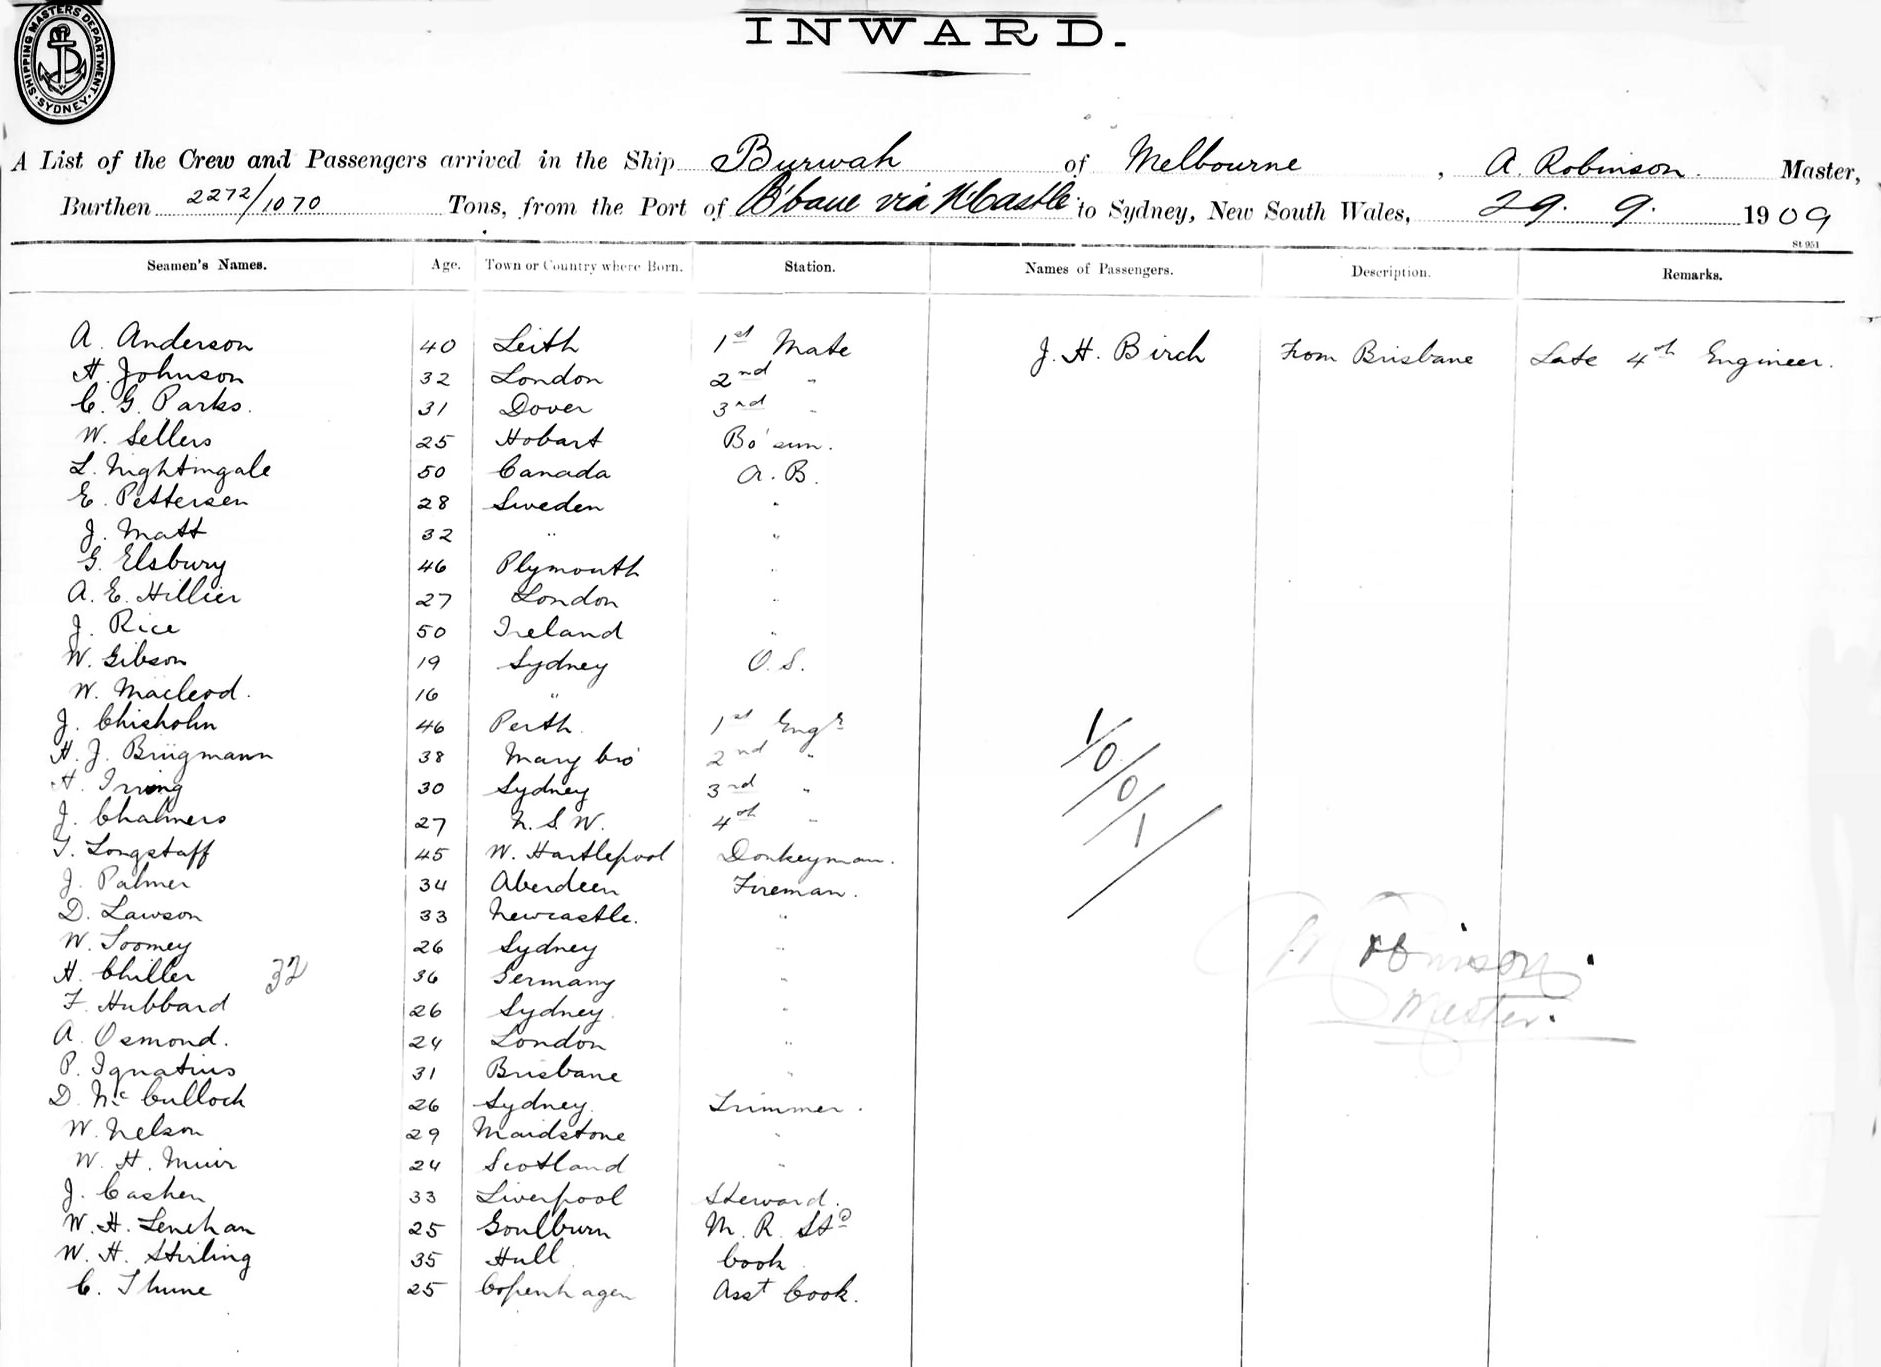 SHIPPING MASTERS DEPARTMENT · SYDNEY ·
INWARD.
A List of the Crew and Passengers arrived in the Ship Burwah of Melbourne, A. Robinson Master,
Burthen 2272/1070 Tons, from the Port of B'bane via N'Castle to Sydney, New South Wales, 29. 9. 1909
St 951
Seamen's Names. Age. Town or Country where Born. Station. Names of Passengers. Description. Remarks.
A. Anderson 40 Leith 1st Mate J. H. Birch From Brisbane Late 4th Engineer.
H. Johnson 32 London 2nd "
C. G. Parks. 31 Dover 3rd "
W. Sellers 25 Hobart Bo'sun.
L. Nightingale 50 Canada A. B.
E. Pettersen 28 Sweden "
J. Matt 32 " "
G. Elsbury 46 Plymouth "
A. E. Hillier 27 London "
J. Rice 50 Ireland "
W. Gibson 19 Sydney O. S.
W. Macleod. 16 "
J. Chisholm 46 Perth. 1st Engr
H. J. Brügmann 38 Mary bro' 2nd "
H. Irving 30 Sydney 3rd "
J. Chalmers 27 N. S. W. 4th "
1/0/0/1/
T. Longstaff 45 W. Hartlepool Donkeyman.
J. Palmer 34 Aberdeen Fireman.
D. Lawson 33 Newcastle. "
W. Toomey 26 Sydney "
A Robinson.
H. Chiller 32 36 Germany "
F. Hubbard 26 Sydney. "
Master.
A. Osmond. 24 London "
P. Ignatius 31 Brisbane "
D. McCulloch 26 Sydney. Trimmer.
W. Nelson 29 Maidstone "
W. H. Muir 24 Scotland "
J. Cashen 33 Liverpool Steward.
W. H. Lenehan 25 Goulburn M. R. Std
W. H. Stirling 35 Hull Cook
C. Thune 25 Copenhagen Asst Cook.